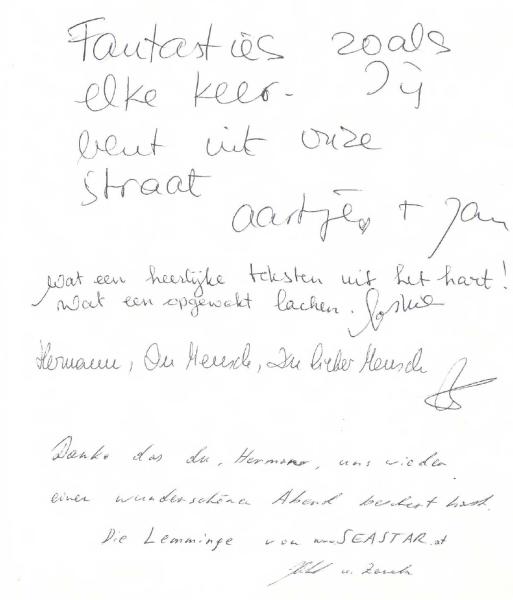 Fantastiés zoals
elke keer. Jij
bent uit onze
straat
aartje + Jan
wat een heerlijke teksten uit het hart!
wat een opgewekt lachen.
Hermann, Du Mensch, Du lieber Mensch
Danke das du, Hermann, uns wieder
einen wunderschönen Abend beschert hast.
Die Lemminge von www.SEASTAR.at
u.